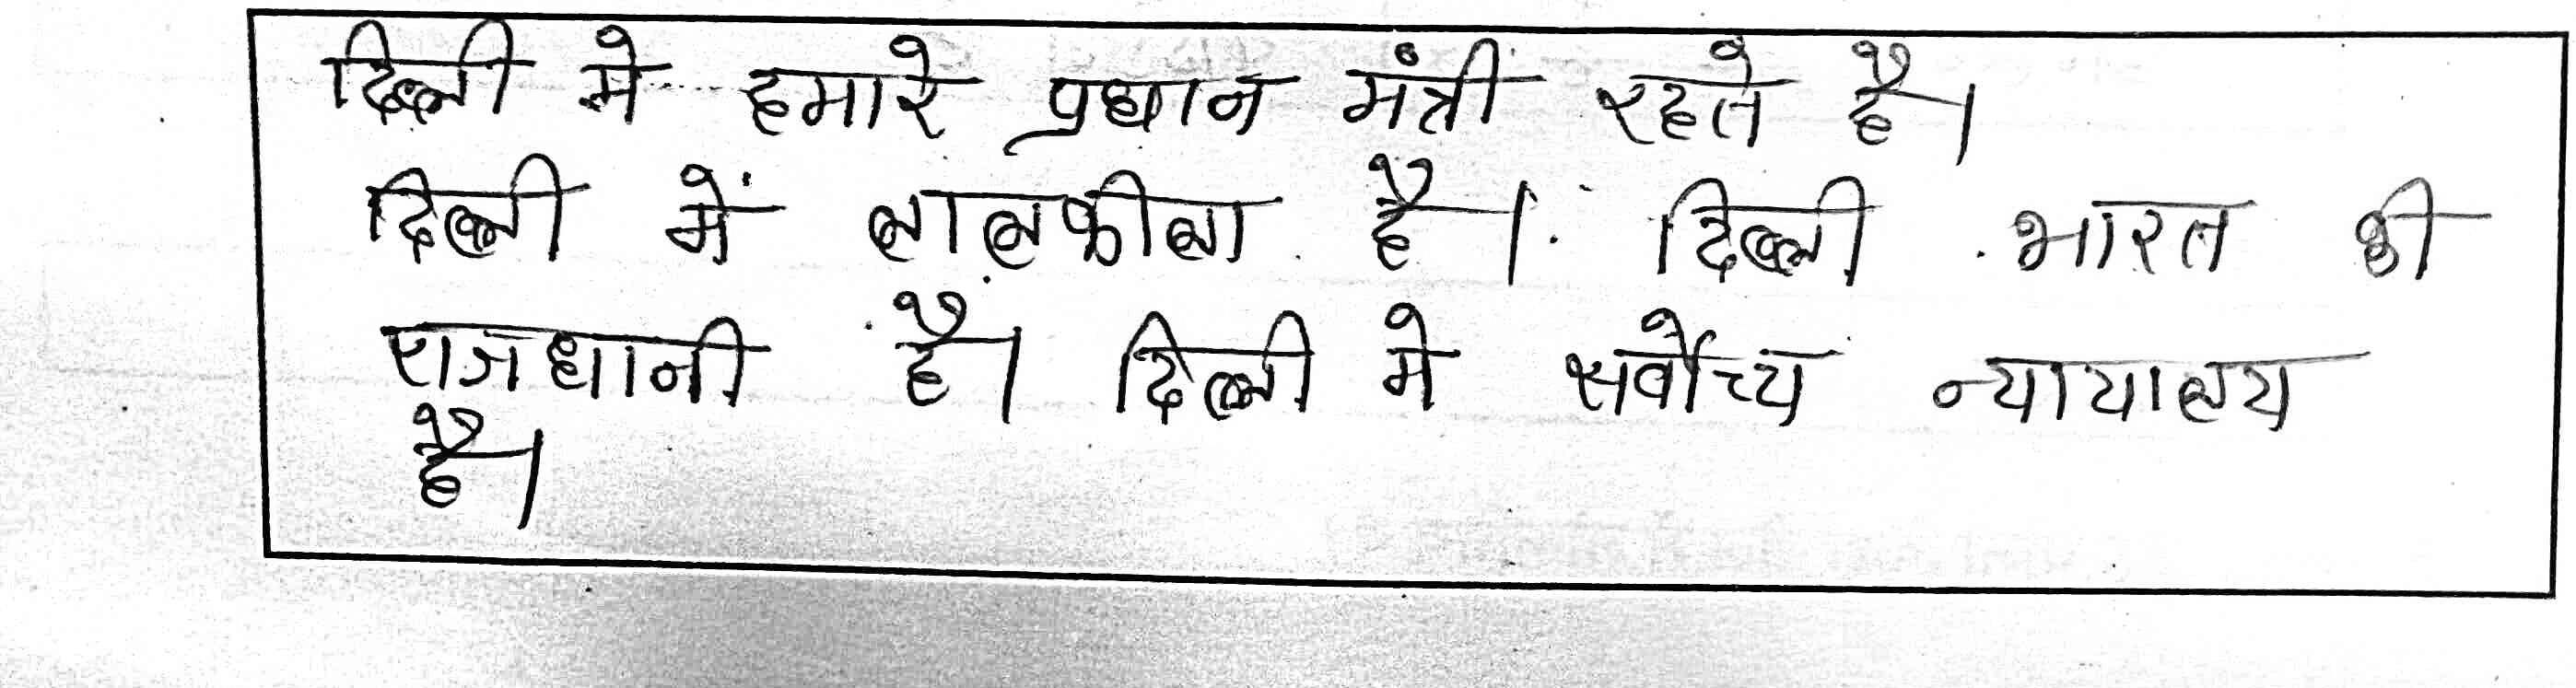 दिल्ली मे हमारे प्रधान मंत्री रहते है।
दिल्ली में लालकीला है। दिल्ली भारत की
राजधानी है। दिल्ली मे सर्वोच्य न्यायालय
है।